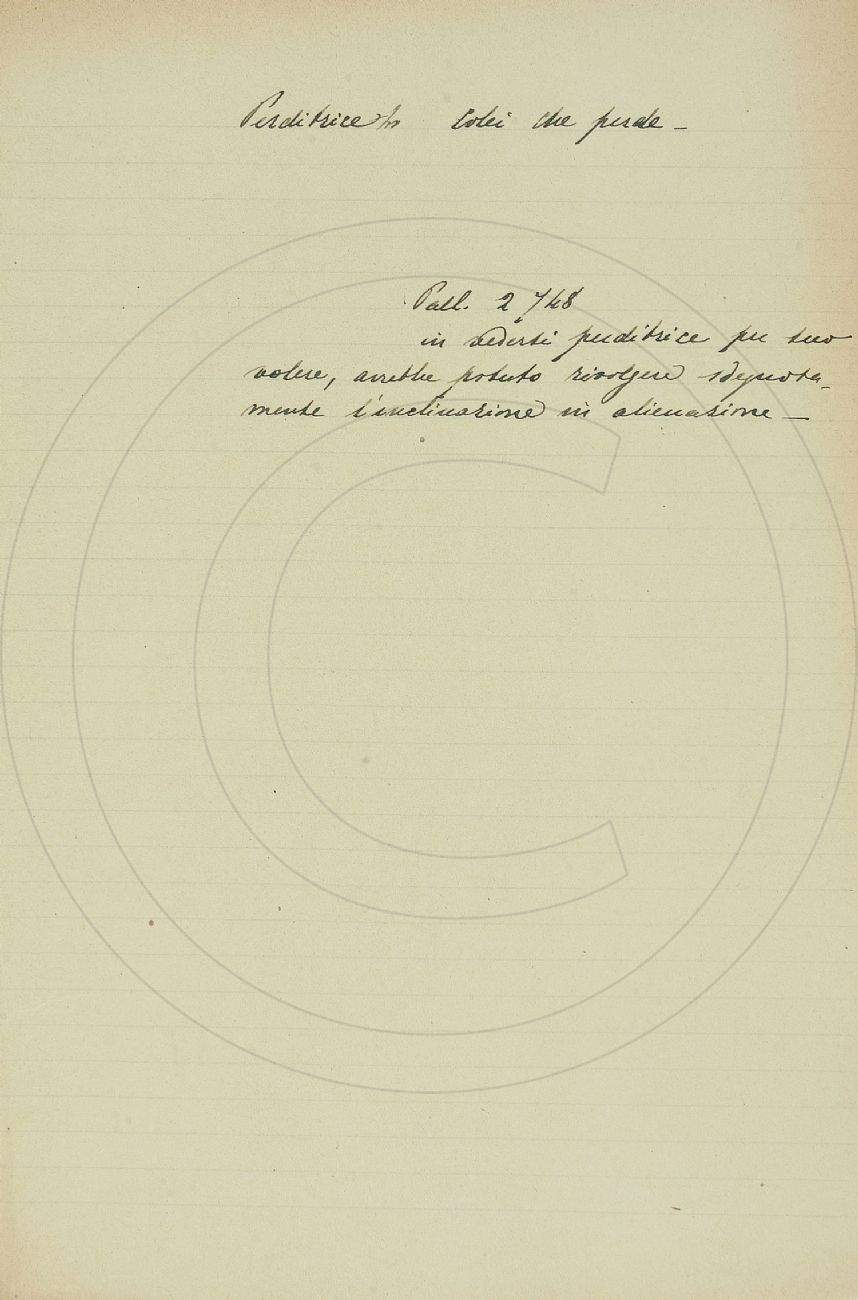 Perditrice fs colei che perde –
Pall. 2 748
in vedersi perditrice per suo
volere, avrebbe potuto rivolgere sdegnosa-
mente l'inclinazione in alienazione –